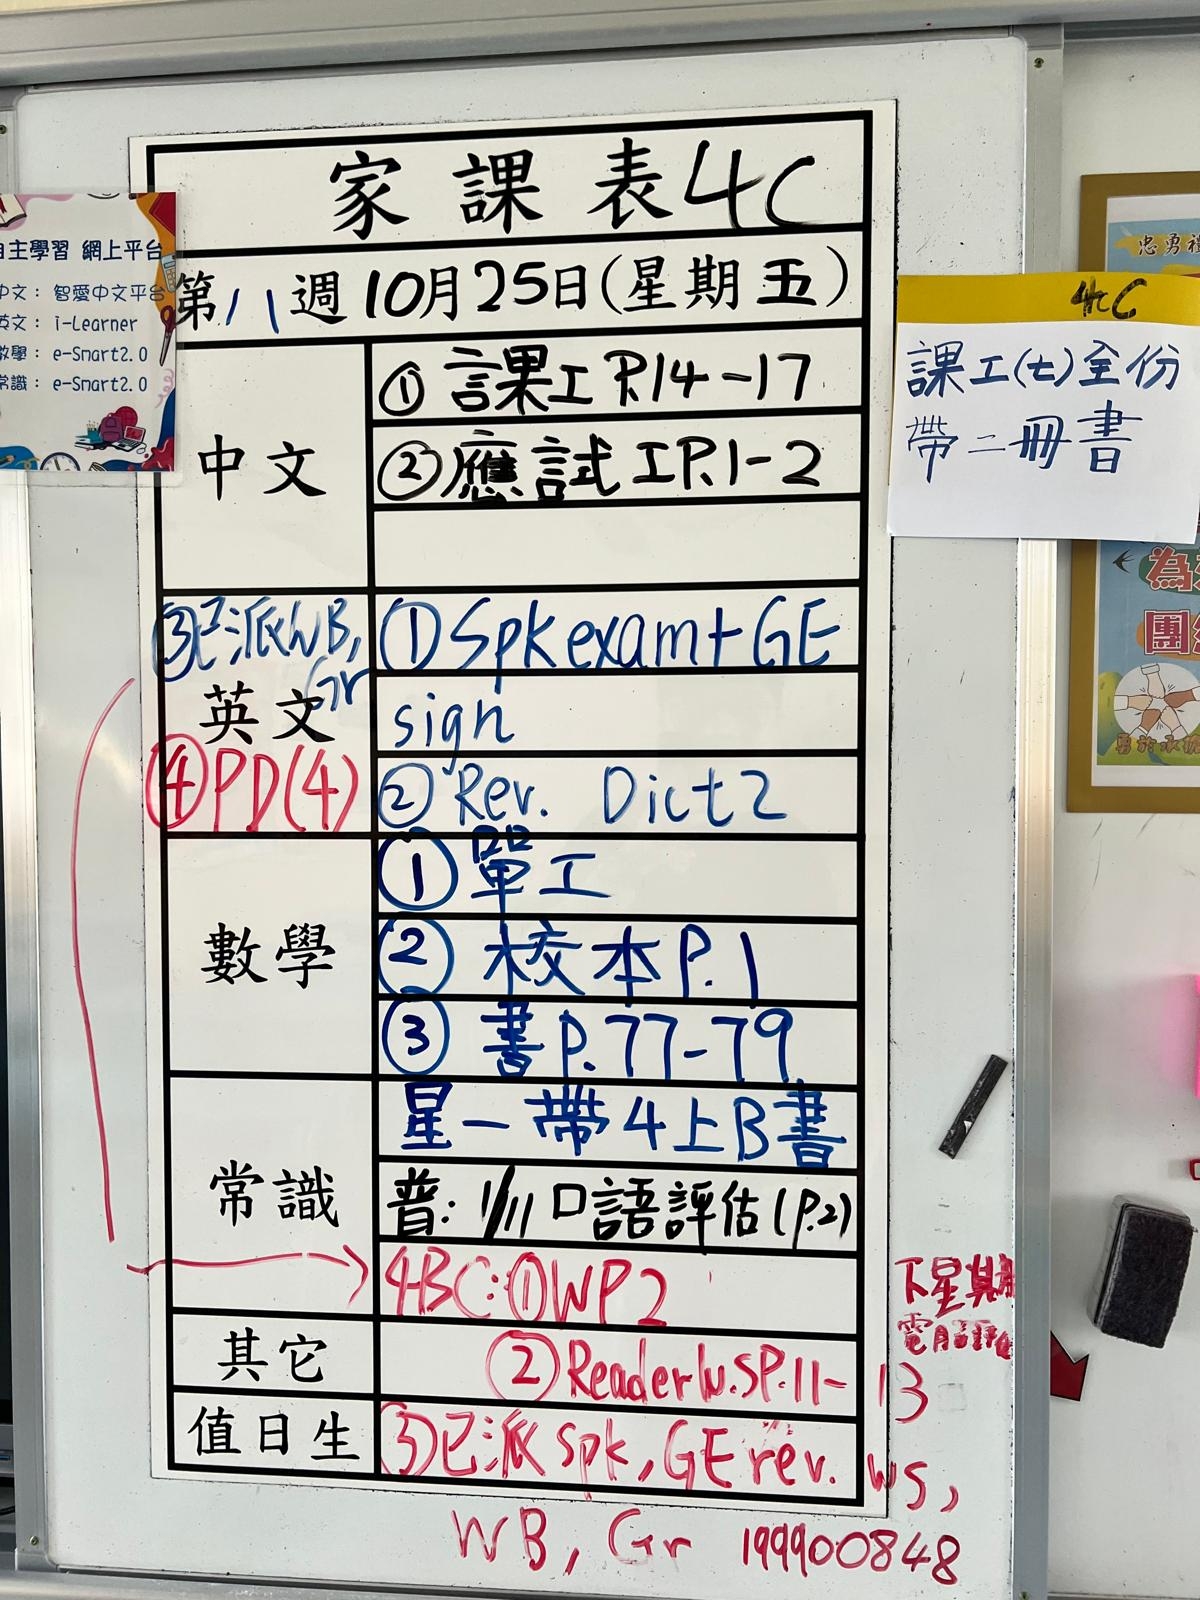 家課表 4C
第八週 10月25日(星期五)
中文
① 課工 P.14-17
② 應試工P.1-2
英文
① Spk exam + GE
sign
② Rev. Dict 2
③已派WB,
Gr
④PD(4)
數學
① 單工
② 校本P.1
③ 書P.77-79
常識
星一帶4上B書
普: 1/11 口語評估(P.2)
4BC:①WP2
其它
② Reader W.S P.11-13
值日生
③已派 spk, GE rev. ws,
WB, Gr 199900848
下星期
自主學習 網上平台
中文: 智愛中文平台
英文: i-Learner
數學: e-Smart2.0
常識: e-Smart2.0
4C
課工(七)全份
帶二冊書
忠勇
為
團